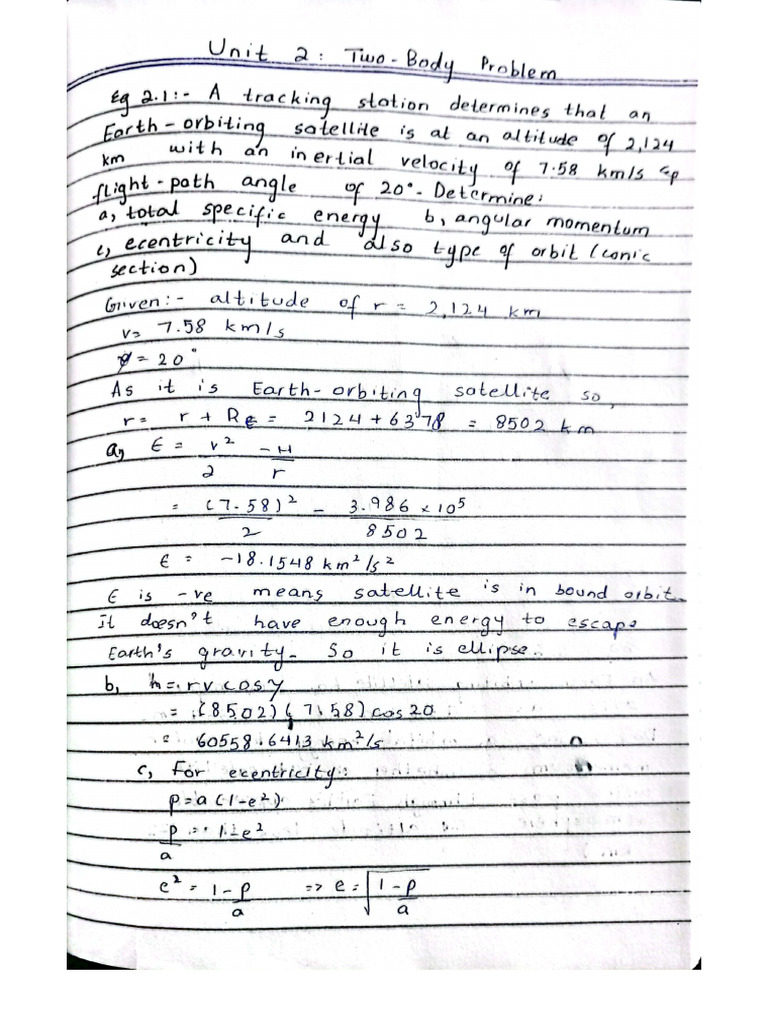 Unit 2: Two-Body Problem
Eg 2.1:- A tracking station determines that an
Earth-orbiting satellite is at an altitude of 2,124
km with an inertial velocity of 7.58 km/s &
flight-path angle of 20°. Determine:
a, total specific energy b, angular momentum
c, ecentricity and also type of orbit (conic
section)
Given:- altitude of r = 2,124 km
v= 7.58 km/s
γ = 20°
As it is Earth-orbiting satellite so,
r= r + RE = 2124 + 6378 = 8502 km
a, ϵ = v²/2 - μ/r
= (7.58)²/2 - 3.986 × 10⁵/8502
ϵ = -18.1548 km²/s²
ϵ is -ve means satellite is in bound orbit.
It doesn't have enough energy to escape
Earth's gravity. So it is ellipse.
b, h = rv cosγ
= (8502)(7.58)cos20
= 60558.6413 km²/s
c, For exentricity:
p = a(1-e²)
p/a = 1-e²
e² = 1 - p/a => e = √(1 - p/a)